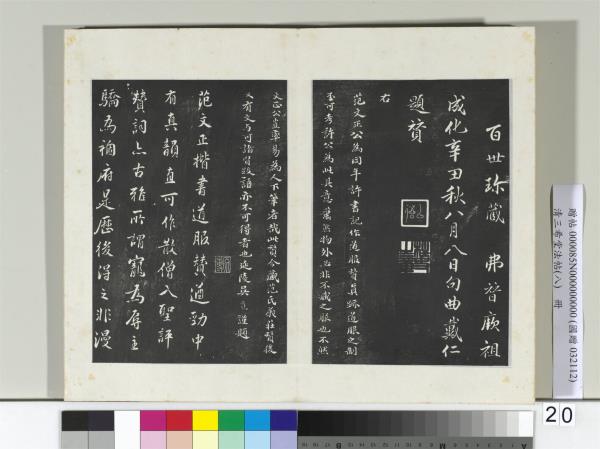 百世珍藏　弗替厥祖
成化辛丑秋八月八日句曲戴仁
題贊
右
范文正公為同年許書記作道服贊真跡道服之制
不可考許公為此其意蕭然物外也非不戒之服也不然
文正公豈率易為人下筆者哉此贊今藏范氏義莊贊後
又有文與可諸賢跋語亦不可得者也延陵吳寬謹題
范文正楷書道服贊遒勁中
有真韻直可作散僧入聖評
贊詞亦古雅所謂寵為辱主
驕為禍府是歷後得之非漫
贈帖 000085N000000000 (國贈 032112)
清三希堂法帖(八) 冊
20